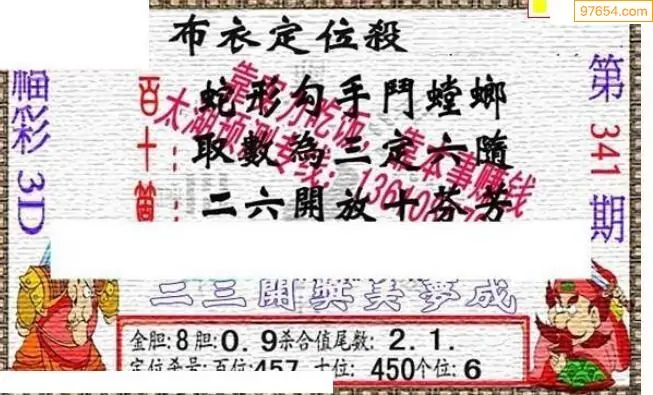 97654.com
布衣定位殺
福彩3D
第341期
百: 蛇形勾手鬥螳螂
十: 取數為三定六隨
二六開放十芬芳
吃饭,靠本事赚钱
太湖预测专线:
二三開獎美夢成
金胆:8胆:0.9杀合值尾数:2.1.
定位杀号:百位:457十位:450个位:6